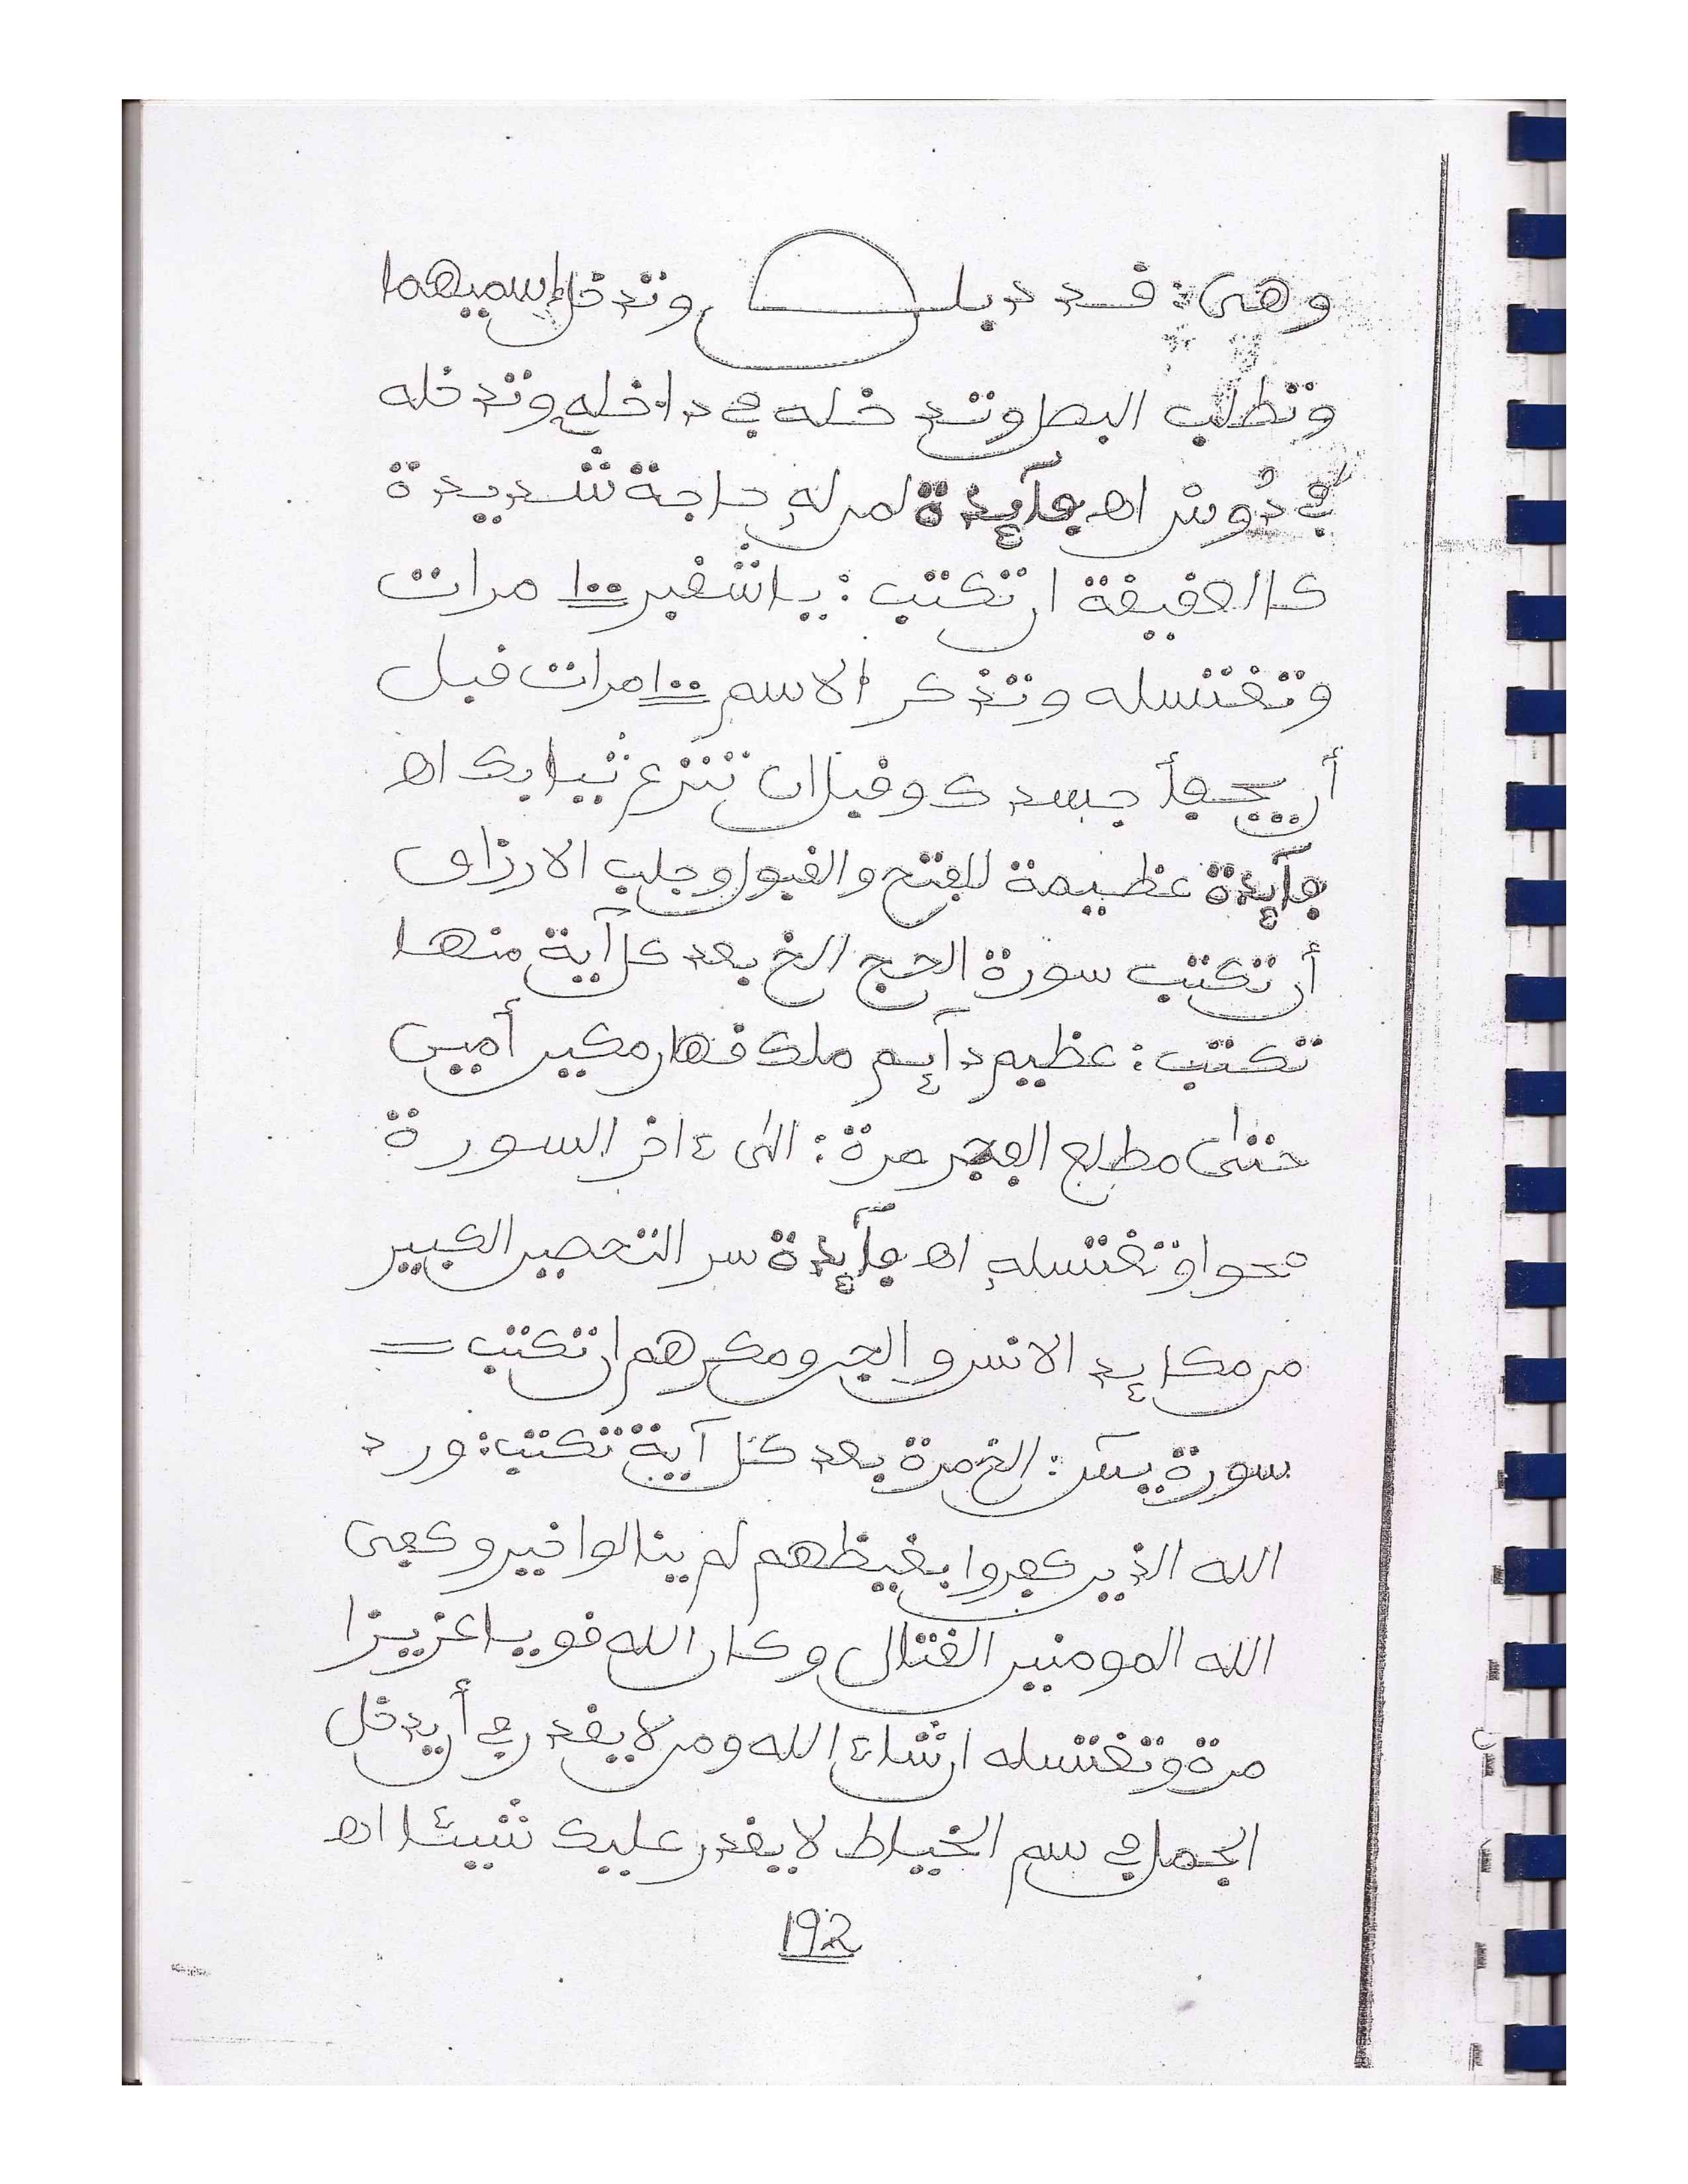 وهى: قد دبلـ وتدخل إسميهما
وتطلب البصل وتدخله في داخله وتدخله
في دُوش اه فآئدة لمن له حاجة شديدة
كالعقيقة ان تكتب: ياشفير ١٠٠ مرات
وتغتسله وتذكر الاسم ١٠٠ مرات قبل
أن يجفأ جسدك وقبل ان تنزع ثيابك اه
فآئدة عظيمة للفتح والقبول وجلب الارزاق
أن تكتب سورة الحج الخ بعد كل آية منها
تكتب: عظيم دآئم ملك قهار مكين أمين
حتى مطلع الفجر مرة: الى ءاخر السورة
محوا وتغتسله اه فآئدة سر التحصين الكبير
من مكايد الانس والجن ومكرهم ان تكتب =
سورة يسٓ: الخ مرة بعد كل آية تكتب: ورد
الله الذين كفروا بغيظهم لم ينالوا خير وكفى
الله المومنين القتال وكان الله قويا عزيزا
مرة وتغتسله ان شاء الله ومن لا يقدر في أن يدخل
الجمل في سم الخياط لا يقدر عليك شيئا اه
192